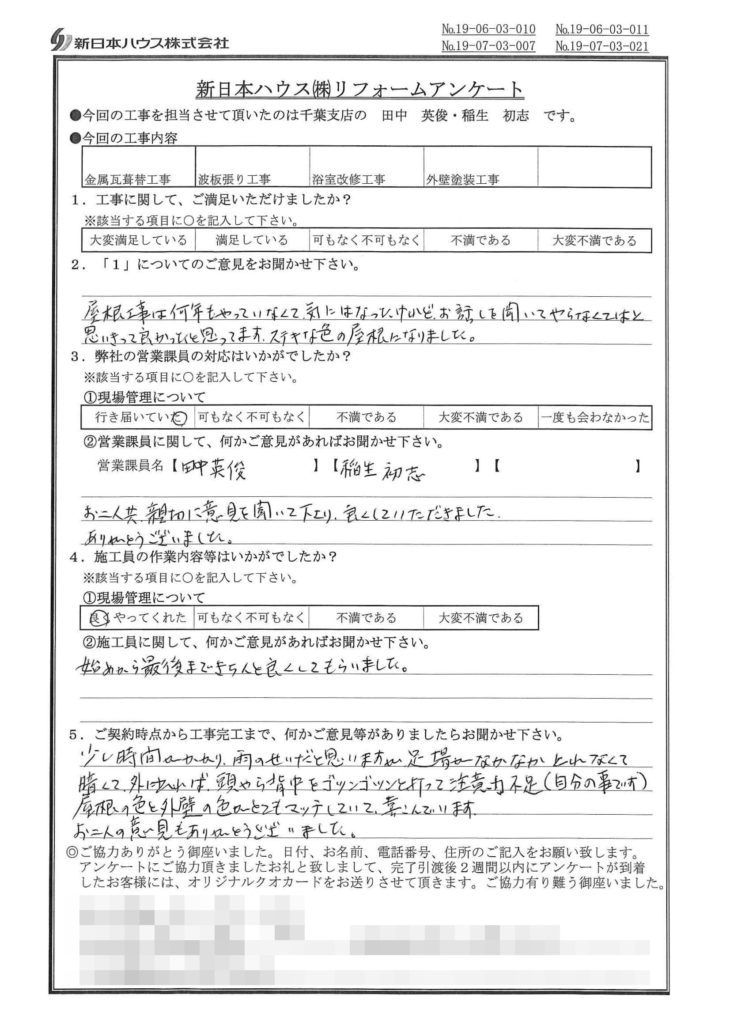 新日本ハウス株式会社
№19-06-03-010 №19-06-03-011
№19-07-03-007 №19-07-03-021
新日本ハウス㈱リフォームアンケート
●今回の工事を担当させて頂いたのは千葉支店の 田中 英俊・稲生 初志 です。
●今回の工事内容
金属瓦葺替工事 波板張り工事 浴室改修工事 外壁塗装工事
1．工事に関して、ご満足いただけましたか？
※該当する項目に○を記入して下さい。
大変満足している 満足している 可もなく不可もなく 不満である 大変不満である
2．「1」についてのご意見をお聞かせ下さい。
屋根工事は何年もやっていなくて、気にはなったけど、お話しを聞いてやらなくてはと
思いきって良かったと思ってます。ステキな色の屋根になりました。
3．弊社の営業課員の対応はいかがでしたか？
※該当する項目に○を記入して下さい。
①現場管理について
行き届いていた 可もなく不可もなく 不満である 大変不満である 一度も会わなかった
②営業課員に関して、何かご意見があればお聞かせ下さい。
営業課員名【田中英俊 】【稲生 初志 】【 】
お二人共、親切に意見を聞いて下さり、良くしていただきました。
ありがとうございました。
4．施工員の作業内容等はいかがでしたか？
※該当する項目に○を記入して下さい。
①現場管理について
良くやってくれた 可もなく不可もなく 不満である 大変不満である
②施工員に関して、何かご意見があればお聞かせ下さい。
始めから最後まできちんと良くしてもらいました。
5．ご契約時点から工事完工まで、何かご意見等がありましたらお聞かせ下さい。
少し時間がかかり、雨のせいだと思いますが、足場がなかなかとれなくて
暗くて、外に出れば、頭やら背中をゴツンゴツンと打って注意力不足(自分の事です)
屋根の色と外壁の色がとてもマッチしていて、喜こんでいます。
お二人の意見もありがとうございました。
◎ご協力ありがとう御座いました。日付、お名前、電話番号、住所のご記入をお願い致します。
アンケートにご協力頂きましたお礼と致しまして、完了引渡後2週間以内にアンケートが到着
したお客様には、オリジナルクオカードをお送りさせて頂きます。ご協力有り難う御座いました。